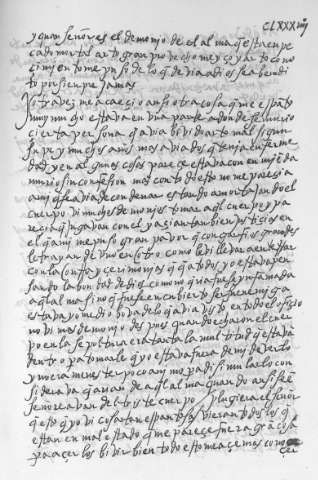 CLXXXIIIJ
y quan señor es el demonjo del al ma q esta en pe
cado mortal arto gran provecho me yço y arto cono
cimjento me puso de lo q devia a dios sea bendi
to por sienpre jamas
otra vez me acaeçio ansi otra cosa q me espanto
muy mucho estava en una parte adonde se murio
cierta persona q avia bivido arto mal sigun
supe y muchos años mas avia dos q tenja enferme
dad y en algunas cosas pareçe estava con enmjenda
murio sin confesion mas con todo esto no me pareçia
a mj q se avia de condenar estando amortajando el
cuerpo vi muchos demonjos tomar aql cuerpo y pa
recia q jugavan con el y açian tanbien justiçias en
el q a mi me puso gran pavor q con garfios grandes
le trayan de uno en otro como le vi llevar a enterrar
con la onrra y çerimonjas q a todos yo estava pen
sando la bondad de dios como no qria fuese ynfamada
aqlla alma sino q fuese encubierto ser su enemjga
estava yo medio bova de lo q avia visto en todo el ofiçio
no vi mas demonjo despues quando echaron el cuer
po en la sepoltura era tanta la multitud q estavan
dentro para tomarle q yo estava fuera de mj de verlo
y no era menester poco anjmo para disimularlo con
siderava q arian de aql alma quando ansi se en
señoreavan del triste cuerpo plugiera el señor
q esto q yo vi cosa tan espantosa vieran todos los q
estan en mal estado q me pareçe fuera gran cosa
para açerlos bivir bien todo esto me açe mas cono
çer